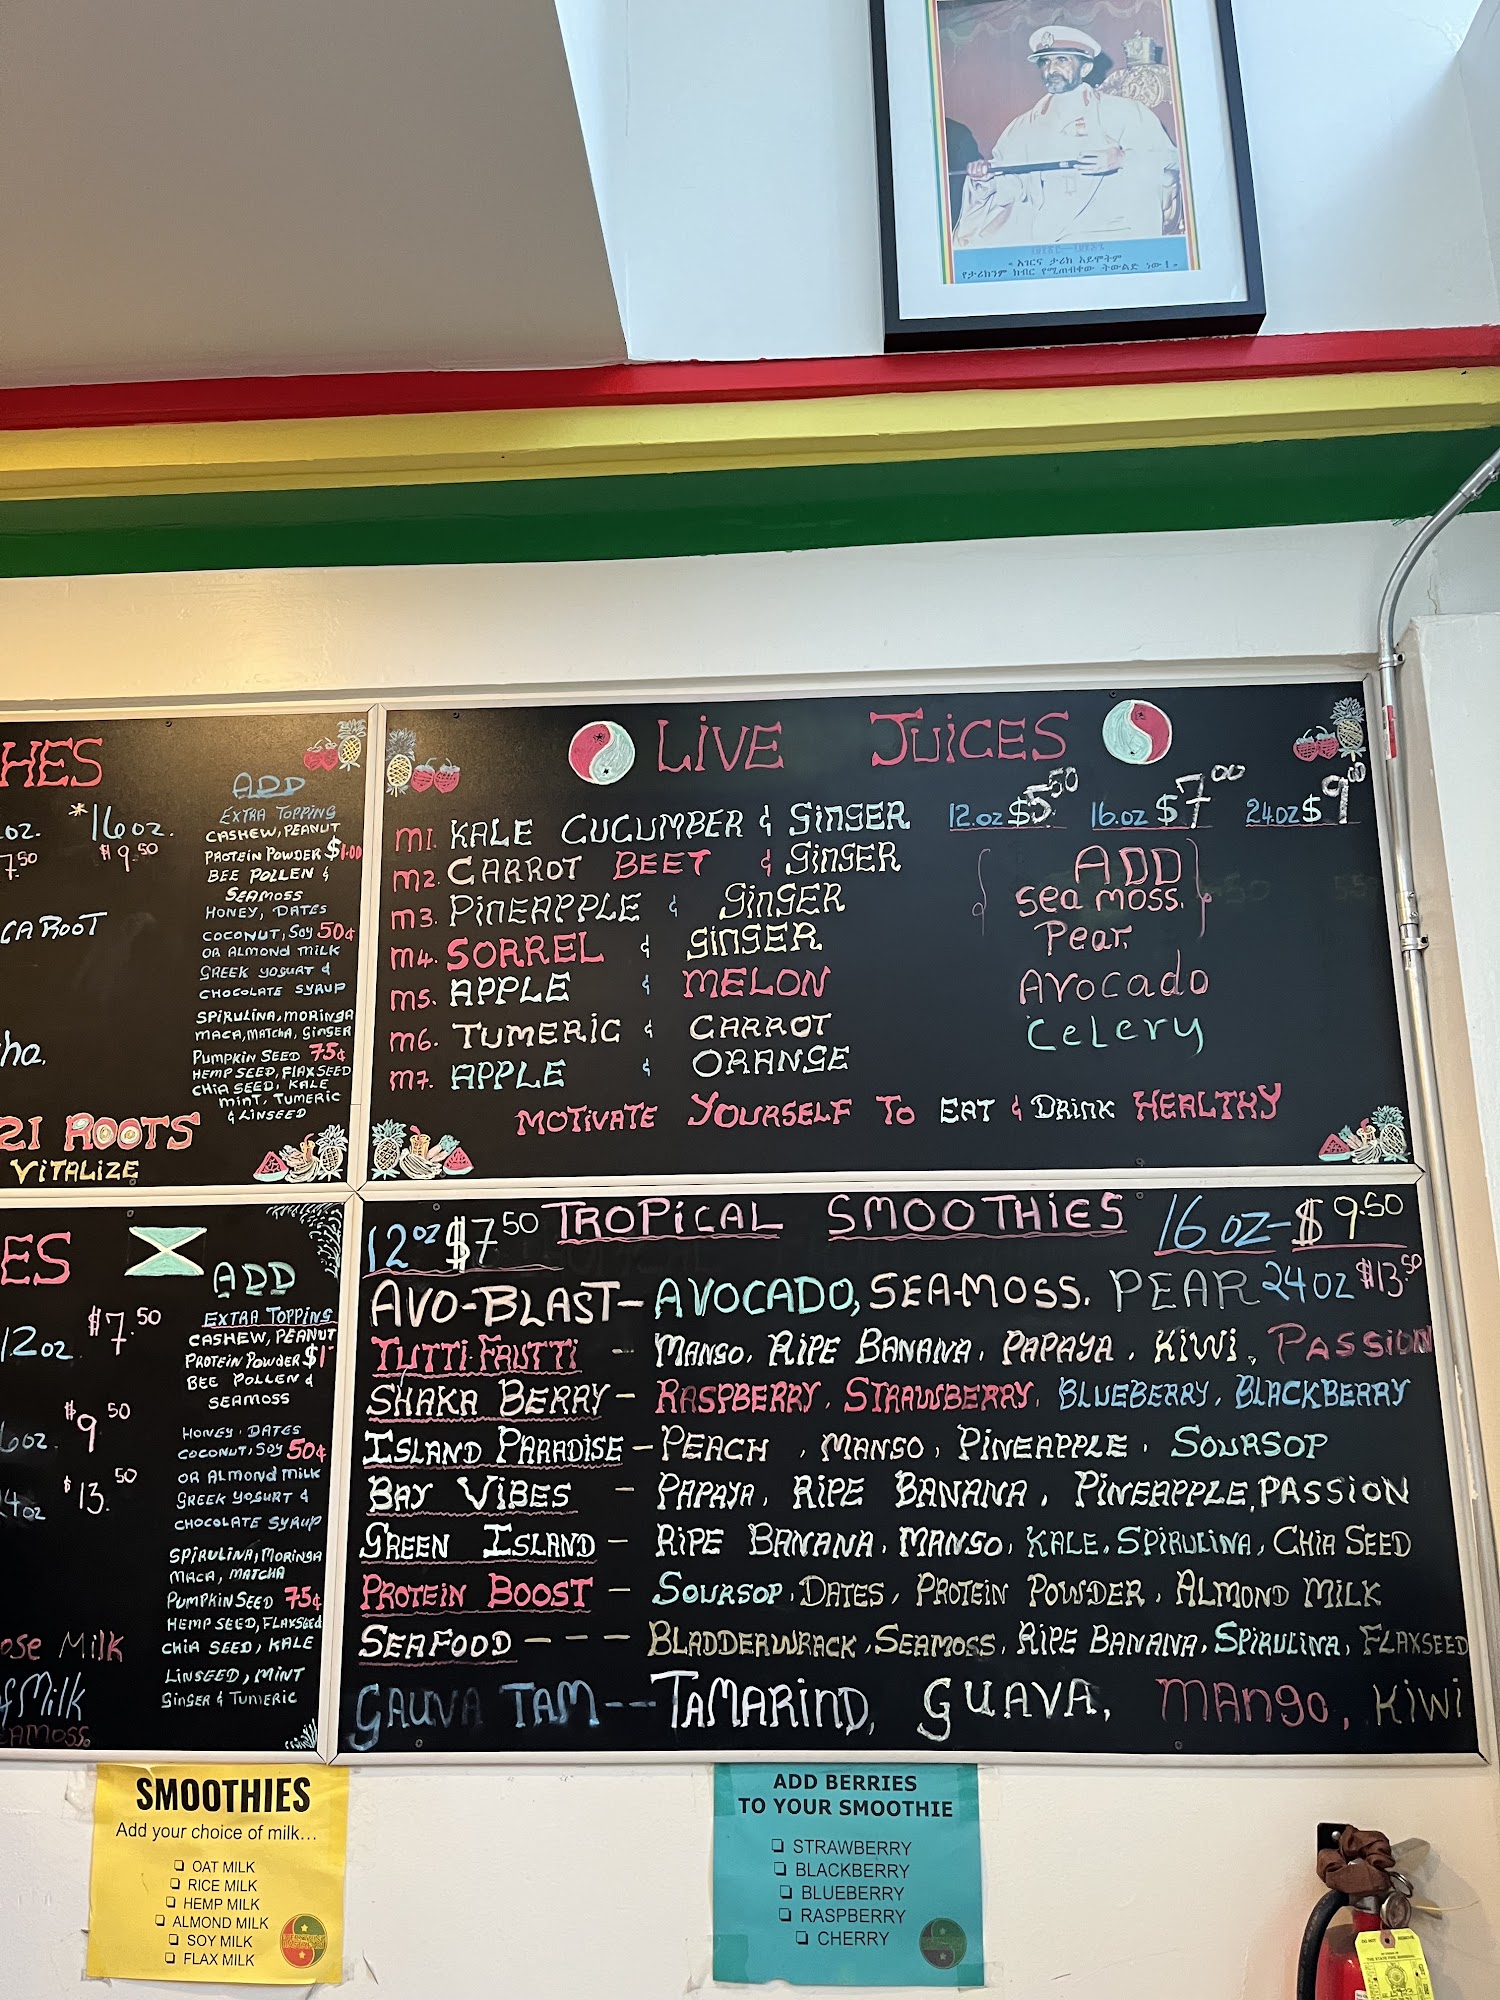 « አገርና ታሪክ አይሞትም
የታሪክንም ክብር የሚጠብቀው ትውልድ ነው! »
HES
oz. *16oz.
7.50 $9.50
CARROT
ha,
21 ROOTS
VITALIZE
ADD
EXTRA TOPPING
CASHEW, PEANUT
PROTEIN POWDER $1.00
BEE POLLEN &
SEAMOSS
HONEY, DATES
COCONUT, SOY 50¢
OR ALMOND MILK
GREEK YOGURT &
CHOCOLATE SYRUP
SPIRULINA, MORINGA
MACA, MATCHA, GINGER
PUMPKIN SEED 75¢
HEMP SEED, FLAXSEED
CHIA SEED, KALE
MINT, TUMERIC
& LINSEED
LIVE JUICES
12.oz $5.50 16.oz $7.00 24oz $9.00
M1. KALE CUCUMBER & GINGER
M2. CARROT BEET & GINGER
M3. PINEAPPLE & GINGER
M4. SORREL & GINGER
M5. APPLE & MELON
M6. TUMERIC & CARROT
M7. APPLE & ORANGE
ADD
sea moss.
Pear.
Avocado
Celery
MOTIVATE YOURSELF TO EAT & DRINK HEALTHY
ES
12oz $7.50
16oz. $9.50
24oz $13.50
ose Milk
f Milk
EAMOSS.
ADD
EXTRA TOPPING
CASHEW, PEANUT
PROTEIN POWDER $1
BEE POLLEN &
SEAMOSS
HONEY, DATES
COCONUT, SOY 50¢
OR ALMOND MILK
GREEK YOGURT &
CHOCOLATE SYRUP
SPIRULINA, MORINGA
MACA, MATCHA
PUMPKIN SEED 75¢
HEMP SEED, FLAXSEED
CHIA SEED, KALE
LINSEED, MINT
GINGER & TUMERIC
12oz $7.50 TROPICAL SMOOTHIES 16 oz-$9.50
24oz $13.50
AVO-BLAST- AVOCADO, SEAMOSS. PEAR
TUTTI-FRUTTI - MANGO, RIPE BANANA, PAPAYA, KIWI, PASSION
SHAKA BERRY - RASPBERRY, STRAWBERRY, BLUEBERRY, BLACKBERRY
ISLAND PARADISE - PEACH, MANGO, PINEAPPLE, SOURSOP
BAY VIBES - PAPAYA, RIPE BANANA, PINEAPPLE, PASSION
GREEN ISLAND - RIPE BANANA, MANGO, KALE, SPIRULINA, CHIA SEED
PROTEIN BOOST - SOURSOP, DATES, PROTEIN POWDER, ALMOND MILK
SEAFOOD - - - BLADDERWRACK, SEAMOSS, RIPE BANANA, SPIRULINA, FLAXSEED
GAUVA TAM --- TAMARIND, GUAVA, MANGO, KIWI
SMOOTHIES
Add your choice of milk...
OAT MILK
RICE MILK
HEMP MILK
ALMOND MILK
SOY MILK
FLAX MILK
ADD BERRIES
TO YOUR SMOOTHIE
STRAWBERRY
BLACKBERRY
BLUEBERRY
RASPBERRY
CHERRY